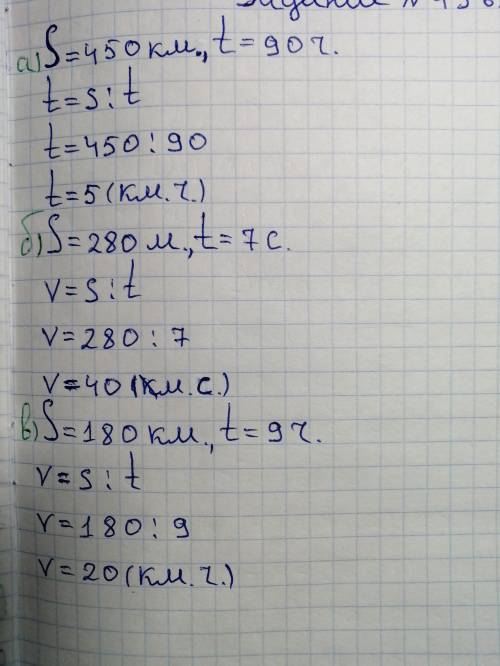 Задание №
а) S=450 км., t=90 ч.
t=S:t
t=450:90
t=5 (км.ч.)
б) S=280 м., t=7 с.
V=S:t
V=280:7
V=40 (км.с.)
в) S=180 км., t=9 ч.
V=S:t
V=180:9
V=20 (км.ч.)